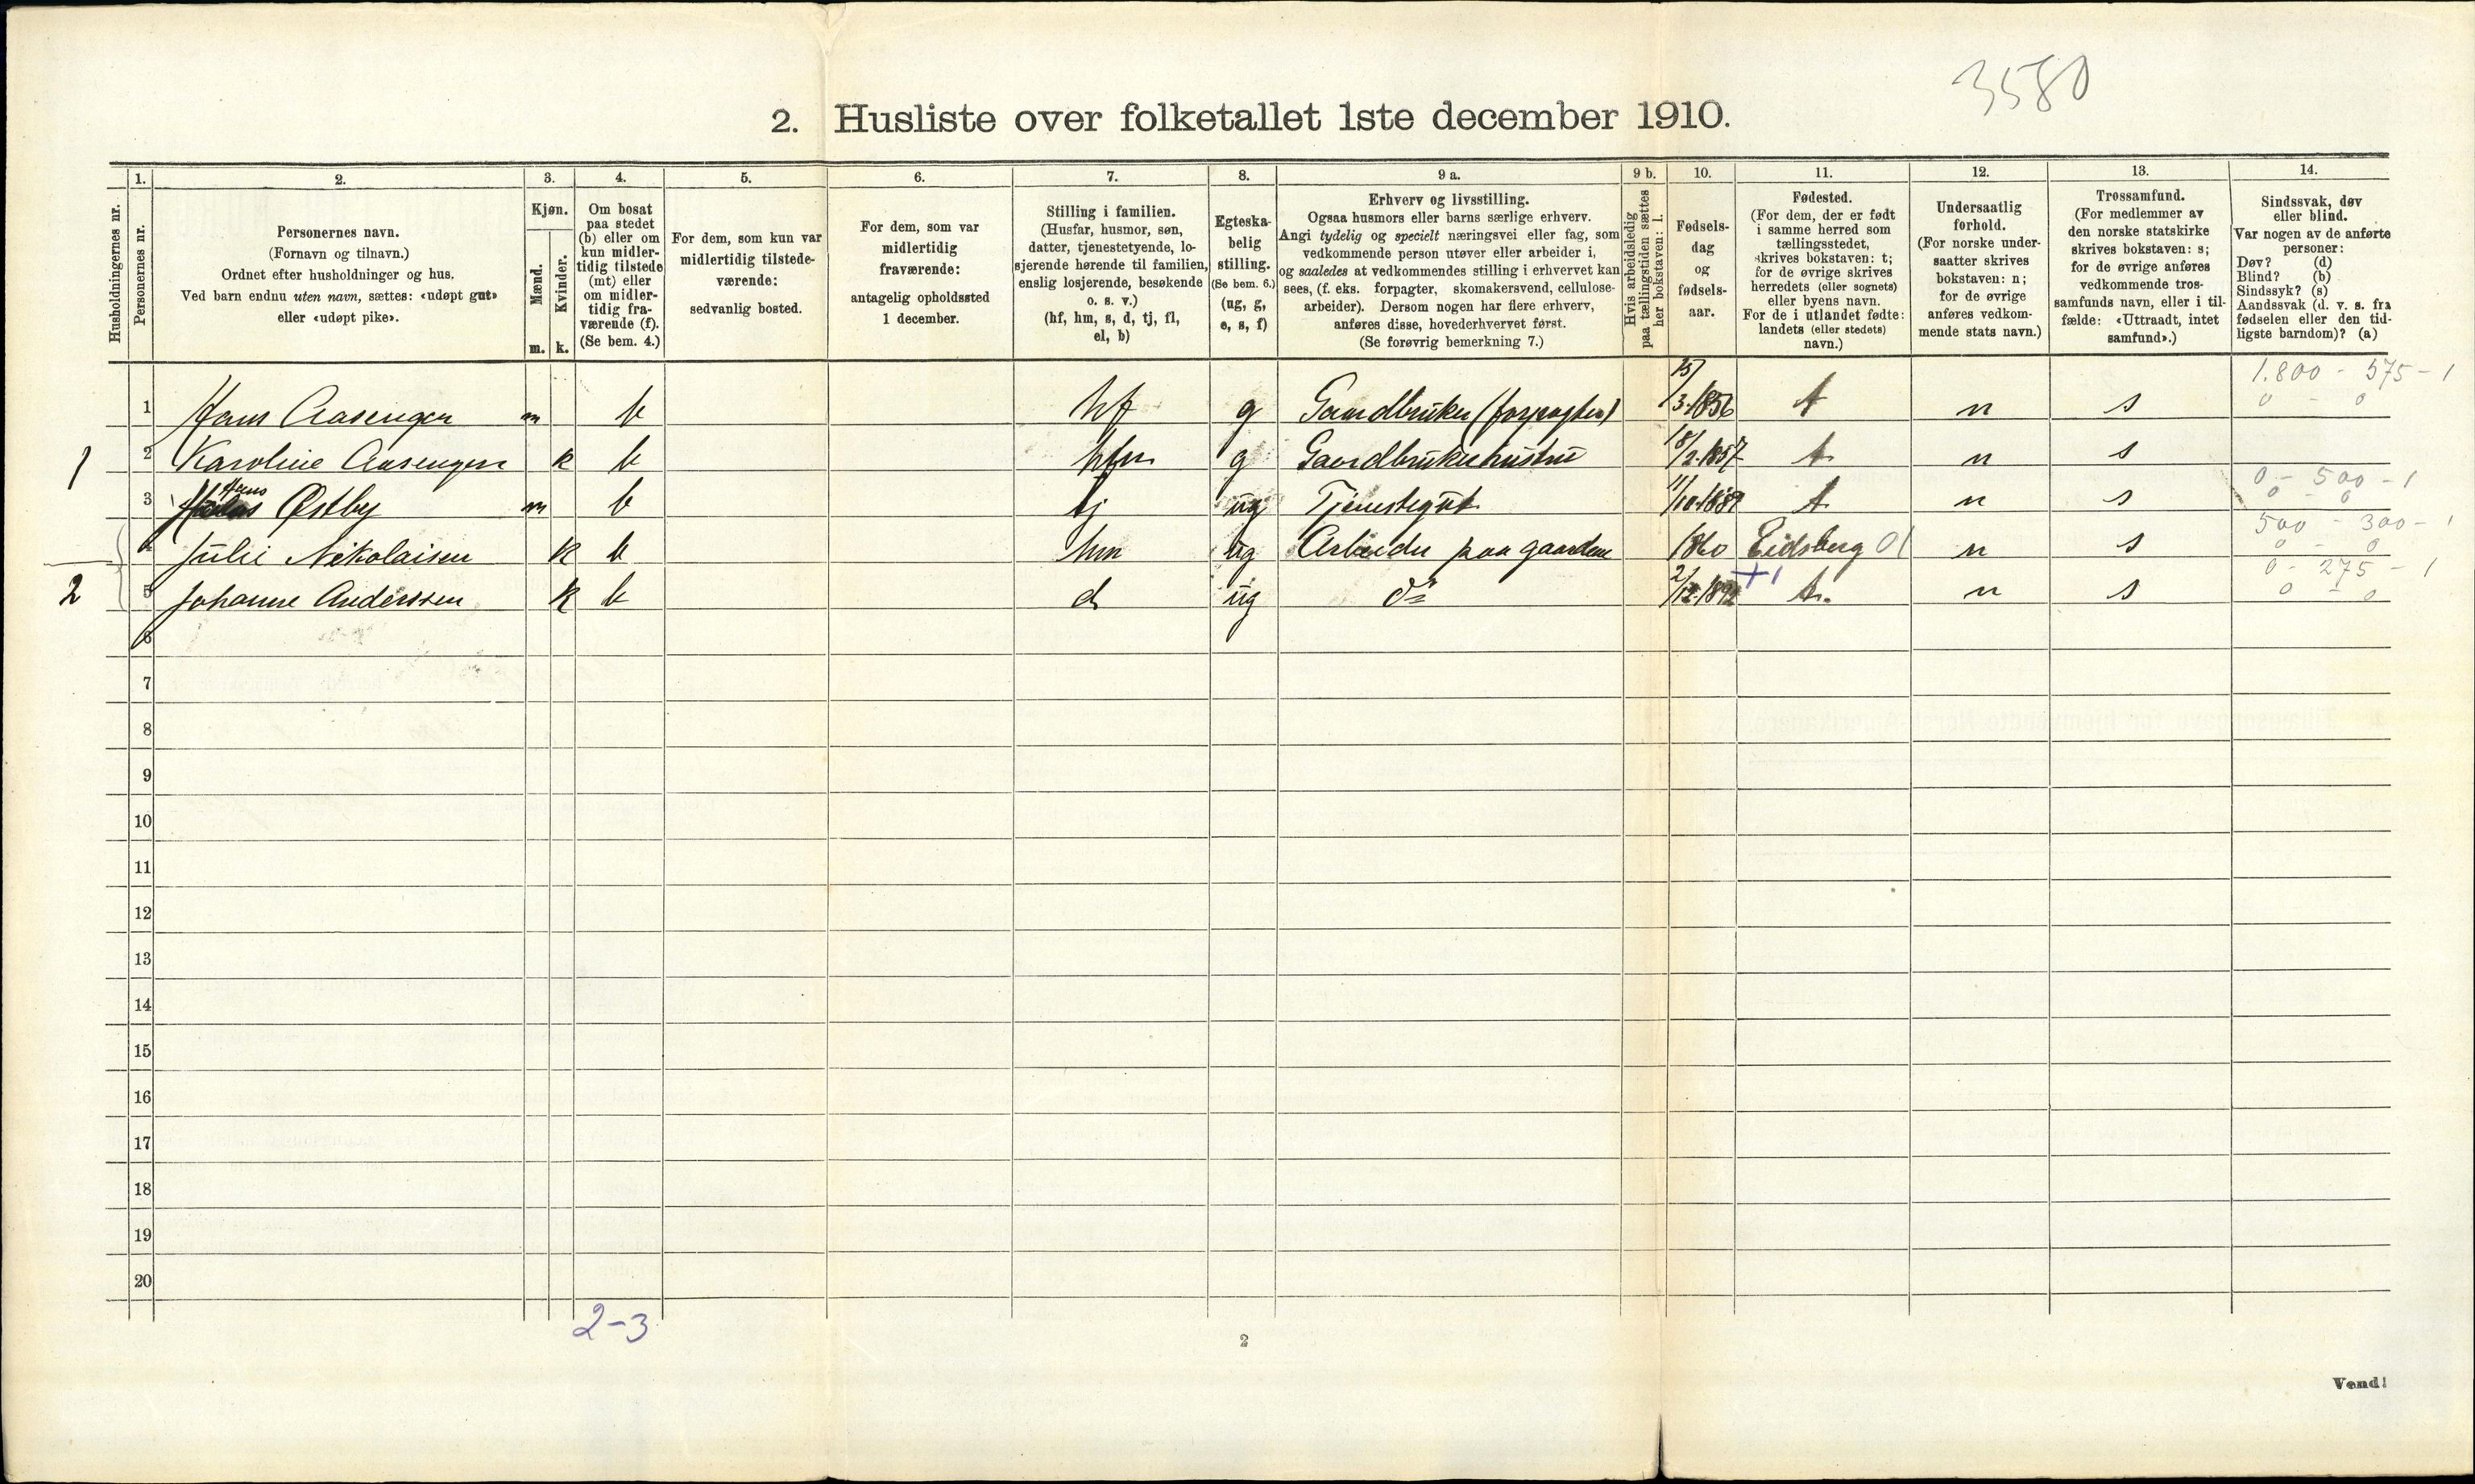 3580
2. Husliste over folketallet 1ste december 1910.
Husholdningernes nr.
1.
Personernes nr.
2.
Personernes navn.
(Fornavn og tilnavn.)
Ordnet efter husholdninger og hus.
Ved barn endnu uten navn, sættes: «udøpt gut»
eller «udøpt pike».
3.
Kjøn.
Mænd.
Kvinder.
m. k.
4.
Om bosat
paa stedet
(b) eller om
kun midler-
tidig tilstede
(mt) eller
om midler-
tidig fra-
værende (f).
(Se bem. 4.)
5.
For dem, som kun var
midlertidig tilstede-
værende:
sedvanlig bosted.
6.
For dem, som var
midlertidig
fraværende:
antagelig opholdssted
1 december.
7.
Stilling i familien.
(Husfar, husmor, søn,
datter, tjenestetyende, lo-
sjerende hørende til familien,
enslig losjerende, besøkende
o. s. v.)
(hf, hm, s, d, tj, fl,
el, b)
8.
Egteska-
belig
stilling.
(Se bem. 6.)
(ug, g,
e, s, f)
9 a.
Erhverv og livsstilling.
Ogsaa husmors eller barns særlige erhverv.
Angi tydelig og specielt næringsvei eller fag, som
vedkommende person utøver eller arbeider i,
og saaledes at vedkommendes stilling i erhvervet kan
sees, (f. eks. forpagter, skomakersvend, cellulose-
arbeider). Dersom nogen har flere erhverv,
anføres disse, hovederhvervet først.
(Se forøvrig bemerkning 7.)
9 b.
Hvis arbeidsledig
paa tællingstiden sættes
her bokstaven: l.
10.
Fødsels-
dag
og
fødsels-
aar.
11.
Fødested.
(For dem, der er født
i samme herred som
tællingsstedet,
skrives bokstaven: t;
for de øvrige skrives
herredets (eller sognets)
eller byens navn.
For de i utlandet fødte:
landets (eller stedets)
navn.)
12.
Undersaatlig
forhold.
(For norske under-
saatter skrives
bokstaven: n;
for de øvrige
anføres vedkom-
mende stats navn.)
13.
Trossamfund.
(For medlemmer av
den norske statskirke
skrives bokstaven: s;
for de øvrige anføres
vedkommende tros-
samfunds navn, eller i til-
fælde: «Uttraadt, intet
samfund».)
14.
Sindssvak, døv
eller blind.
Var nogen av de anførte
personer:
Døv? (d)
Blind? (b)
Sindssyk? (s)
Aandssvak (d. v. s. fra
fødselen eller den tid-
ligste barndom)? (a)
1 Hans Aasengen m b hf g Gaardbruker (forpagter) 15/3-1856 t n s 1.800 - 575 - 1
0 - 0
1 2 Karoline Aasengen k b hfm g Gaardbrukerhustru 18/2-1857 t n s
3 Hans Østby m b tj ug Tjenestegut 11/10-1889 t n s 0 - 500 - 1
0 - 0
4 Julie Nikolaisen k b hm ug Arbeider paa gaardene 1860 Eidsberg 01 n s 500 - 300 - 1
0 - 0
2 5 Johanne Anderssen k b d ug do 2/12-1892 +1 t. n s 0 - 275 - 1
0 - 0
6
7
8
9
10
11
12
13
14
15
16
17
18
19
20
2-3
2
Vend!